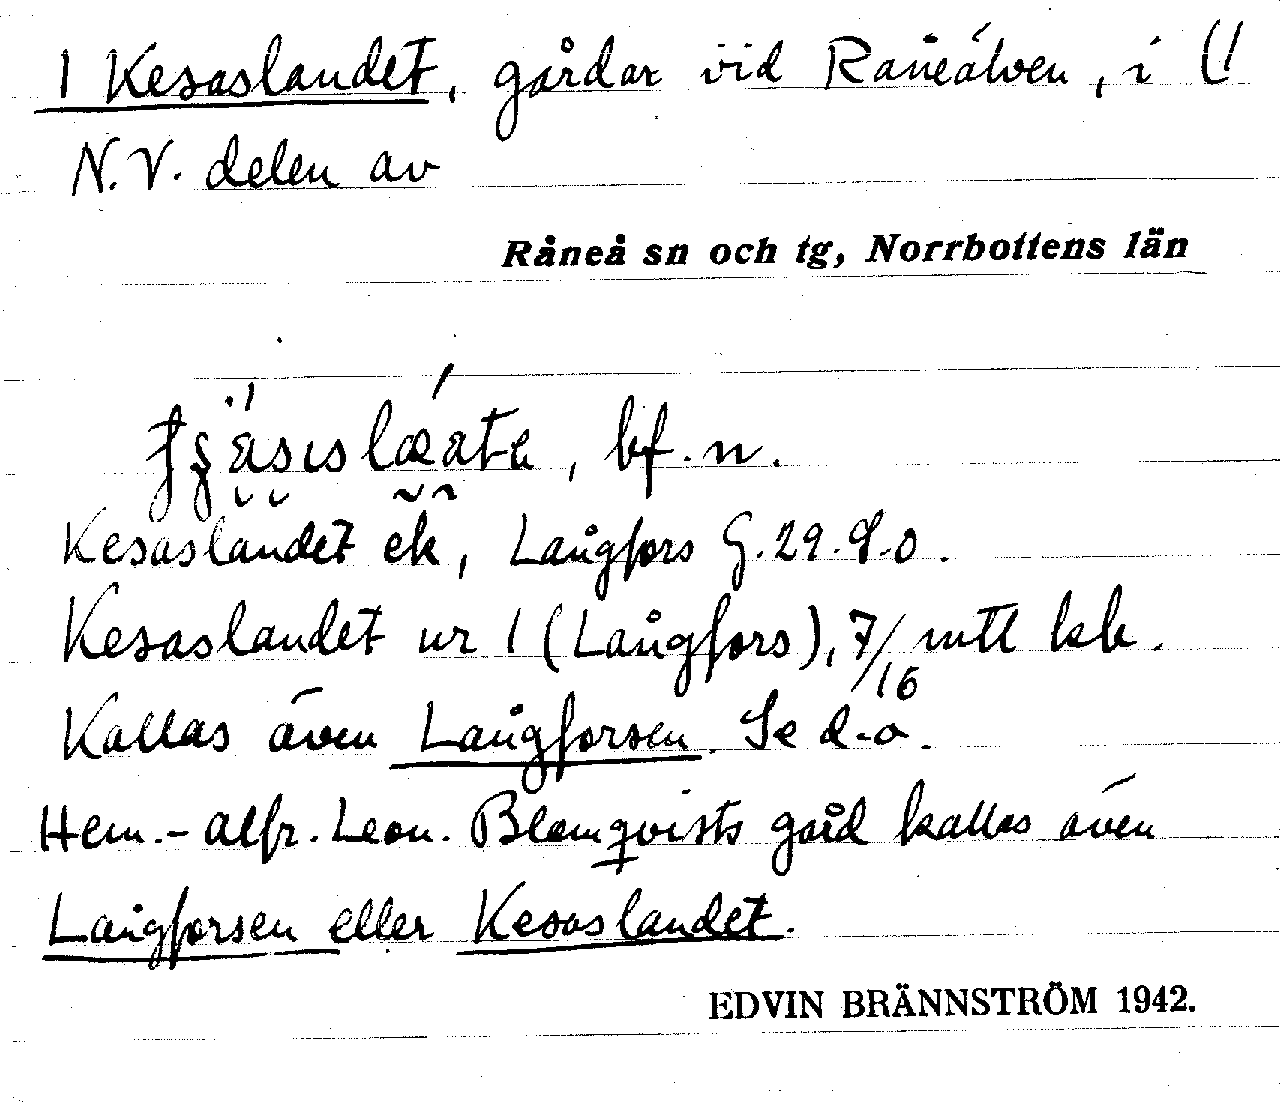 1 Kesaslandet, gårdar vid Råneälven, i
N.V. delen av
Råneå sn och tg, Norrbottens län
bf.n.
Kesaslandet ek, Långfors G.29.9.0.
Kesaslandet ur 1 (Långfors), 7/16 mtl kb.
Kallas även Långforsen. Se d.o.
Hem.- Leon. Blomqvists gård kallas även
Långforsen eller Kesaslandet.
EDVIN BRÄNNSTRÖM 1942.